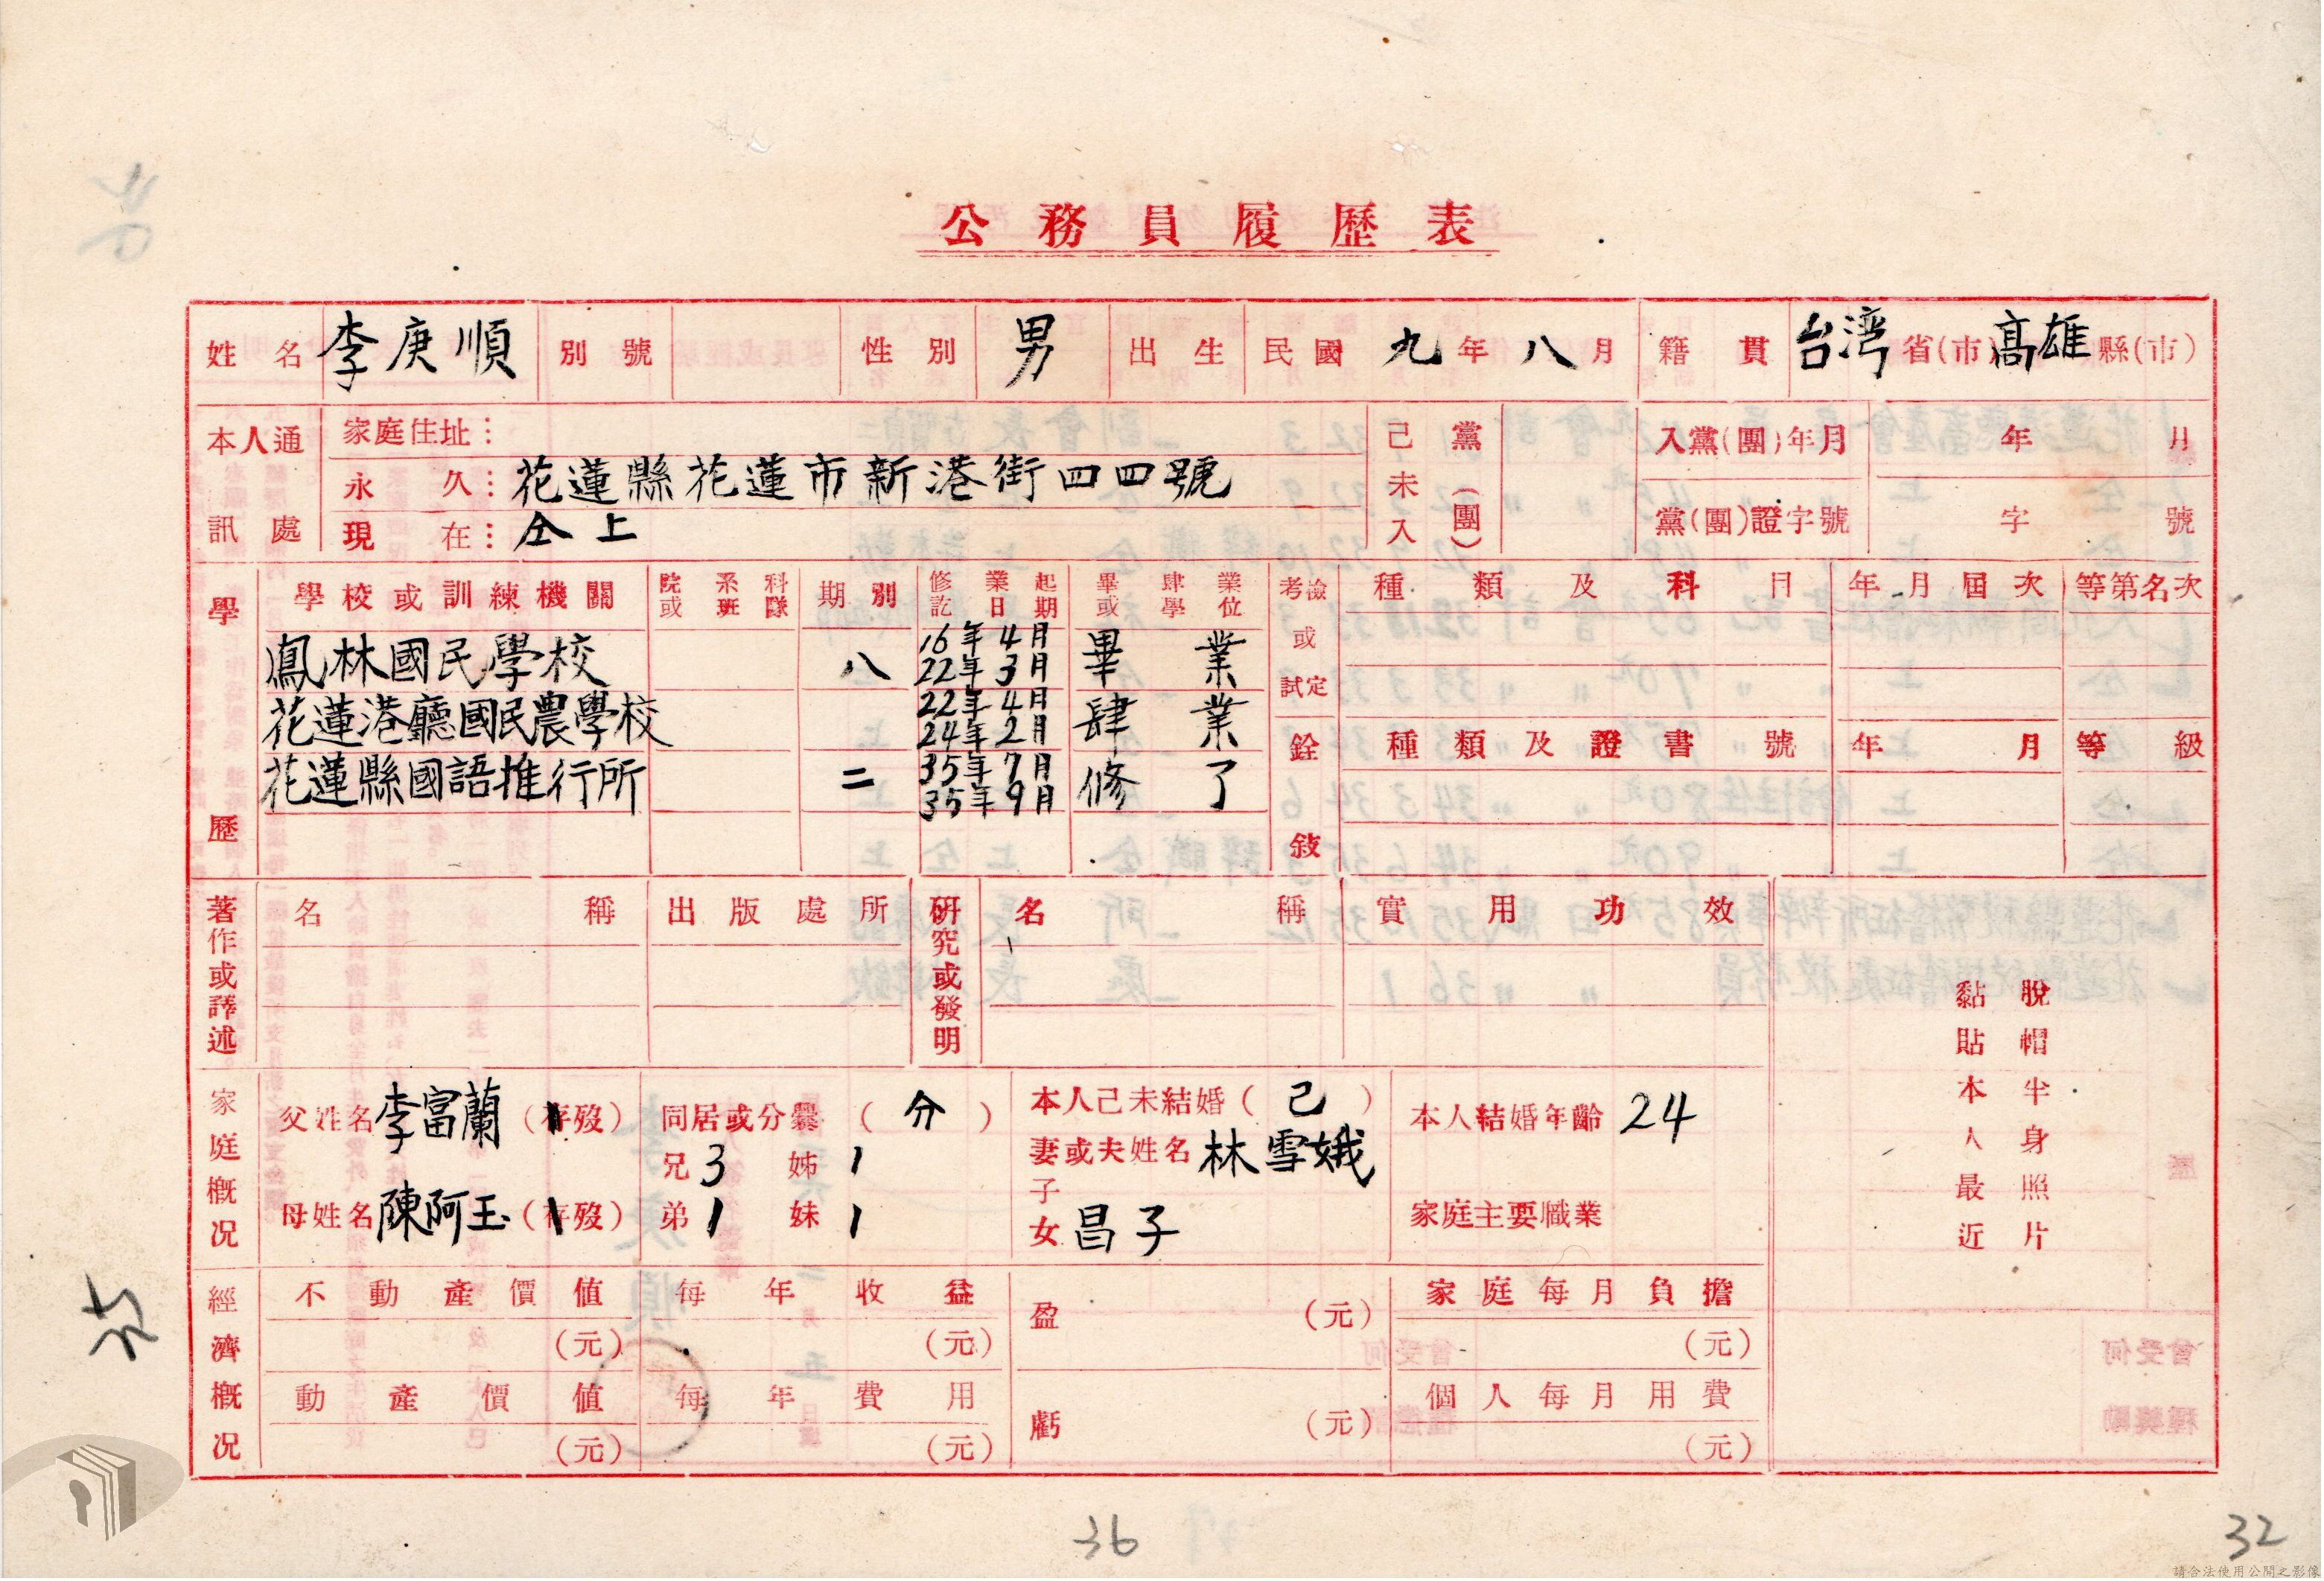 公務員履歷表
姓名 李庚順 別號 性別 男 出生 民國 九年 八月 籍貫 台湾省(市)高雄縣(市)
本人通訊處 家庭住址：
永久：花蓮縣花蓮市新港街四四號
現在：仝上
己未入黨(團) 入黨(團)年月 年 月
黨(團)證字號 字 號
學歷 學校或訓練機關 院或 系班 科隊 期別 修業起訖日期 畢肆業或學位
鳳林國民學校 八 16年4月 22年3月 畢業
花蓮港廳國民農學校 22年4月 24年2月 肆業
花蓮縣國語推行所 二 35年7月 35年9月 修了
考檢或試定 種類及科目 年月屆次 等第名次
銓敍 種類及證書號 年月 等級
著作或譯述 名稱 出版處所
研究或發明 名稱 實用功效
脫帽半身照片
黏貼本人最近
家庭概況 父姓名 李富蘭 (存歿) 同居或分爨 (分)
兄 3 姊 1
母姓名 陳阿玉 (存歿) 弟 1 妹 1
本人己未結婚 (己) 本人結婚年齡 24
妻或夫姓名 林雪娥
子女 昌子 家庭主要職業
經濟概況 不動產價值 (元) 每年收益 (元) 盈 (元) 家庭每月負擔 (元)
動產價值 (元) 每年費用 (元) 虧 (元) 個人每月用費 (元)
36
32
請合法使用公開之影像